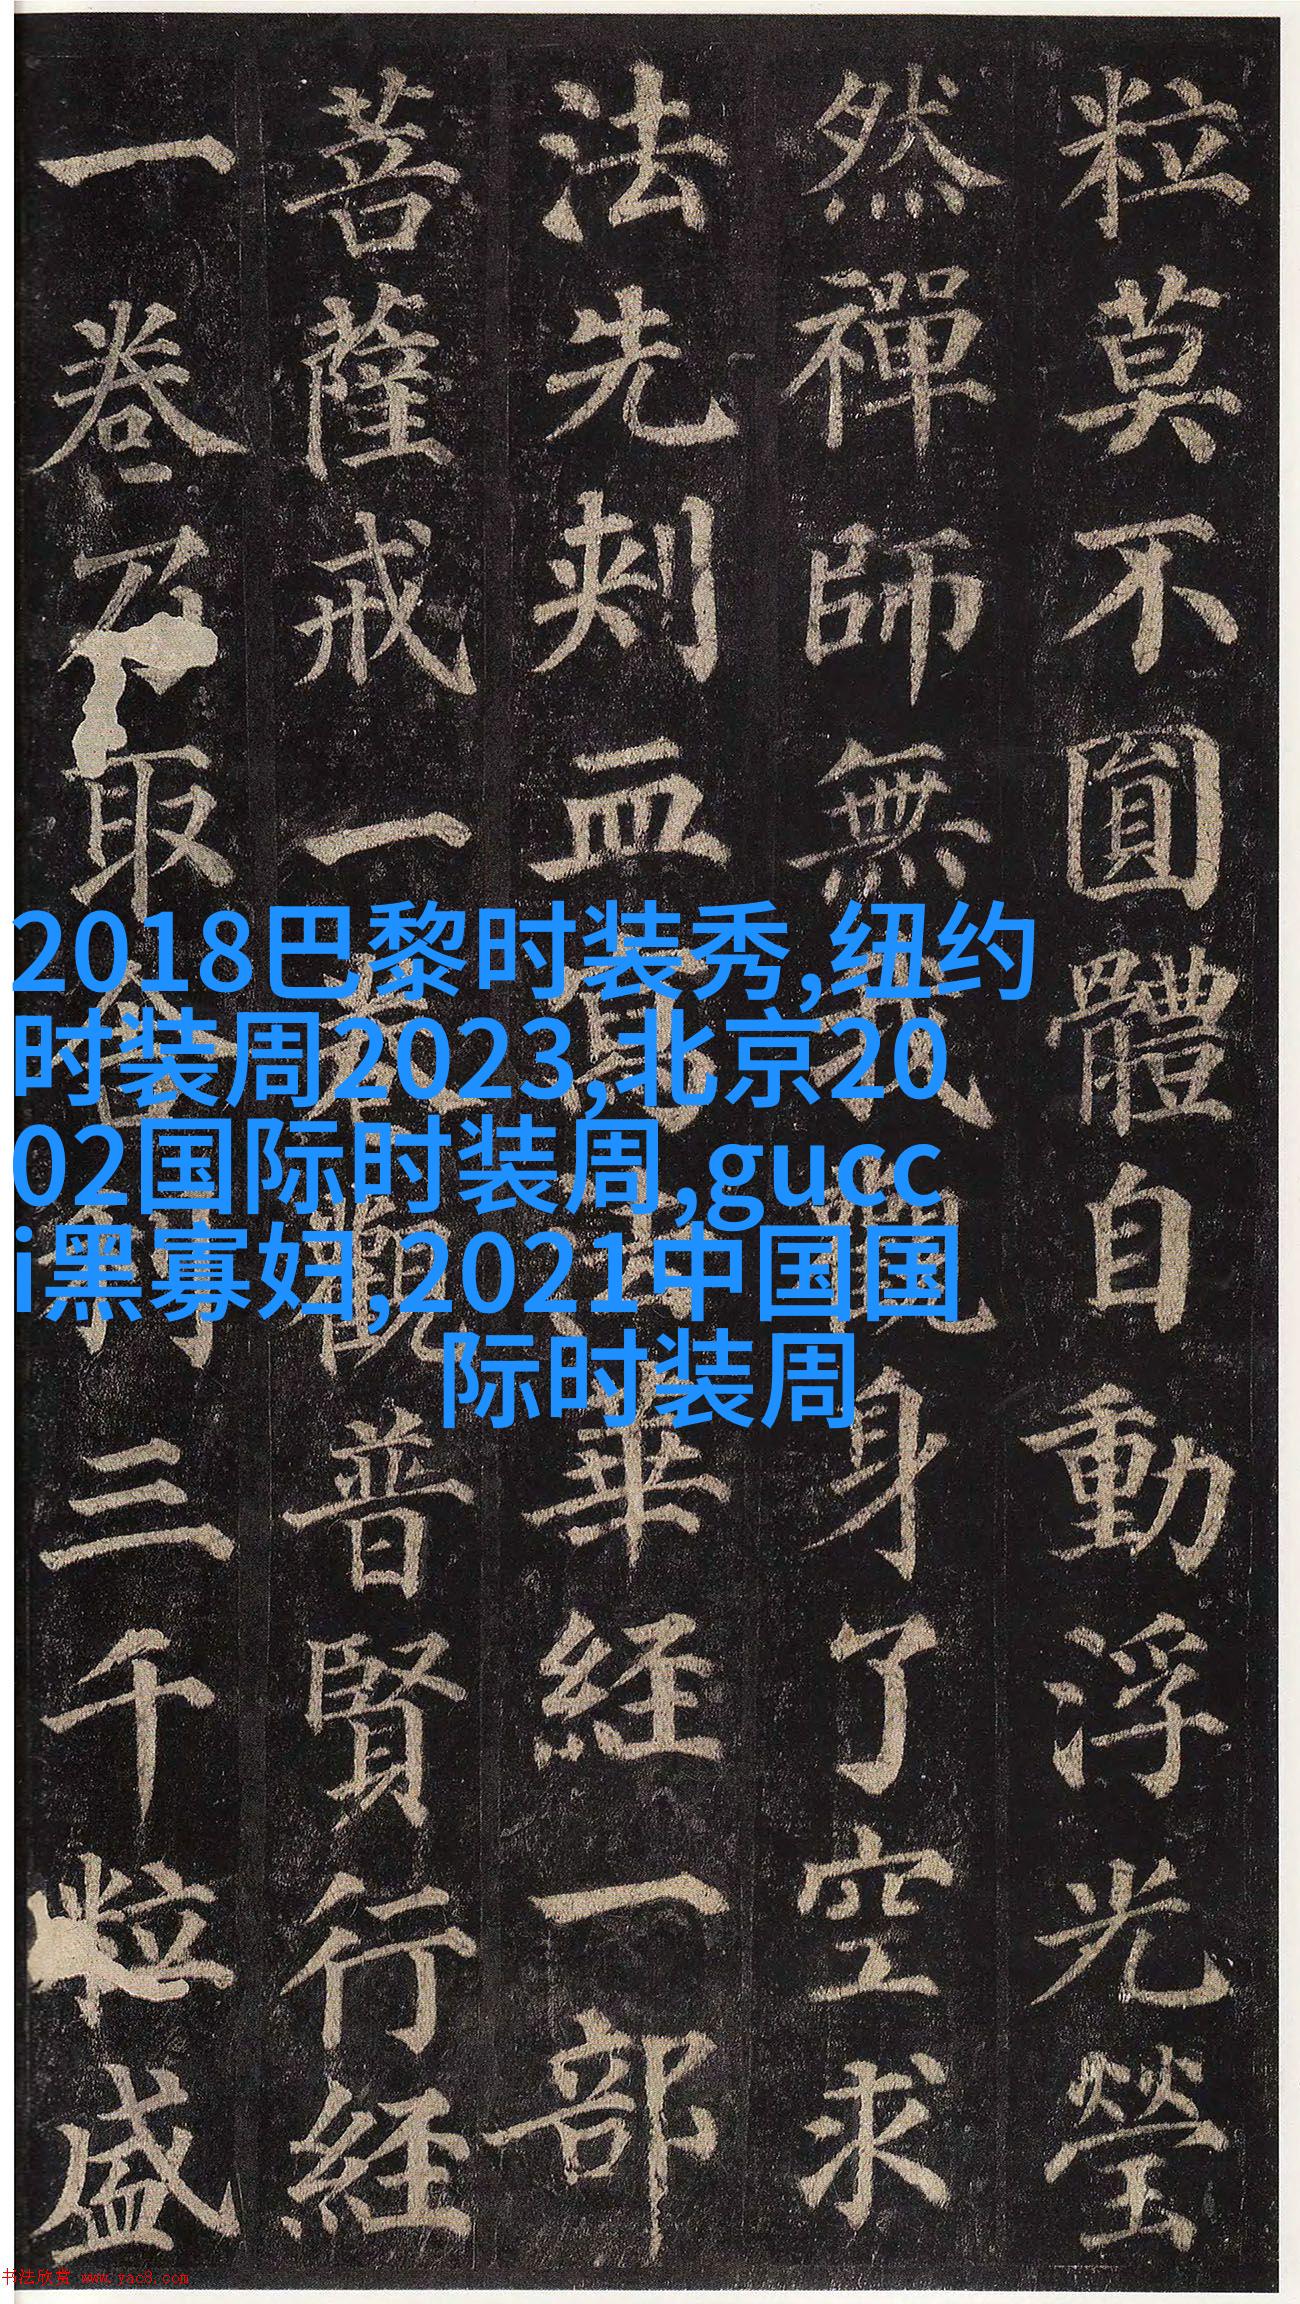 粒莫不圓體自動浮光瑩
然禪師無我觀身了空求
法先刺血寫法華経一部
菩薩戒一卷觀普賢行経
一卷乃取舍利三千粒盛
2018巴黎时装秀,纽约
时装周2023,北京20
02国际时装周,gucc
i黑寡妇,2021中国国
际时装周
书法欣赏 www.yac8.com